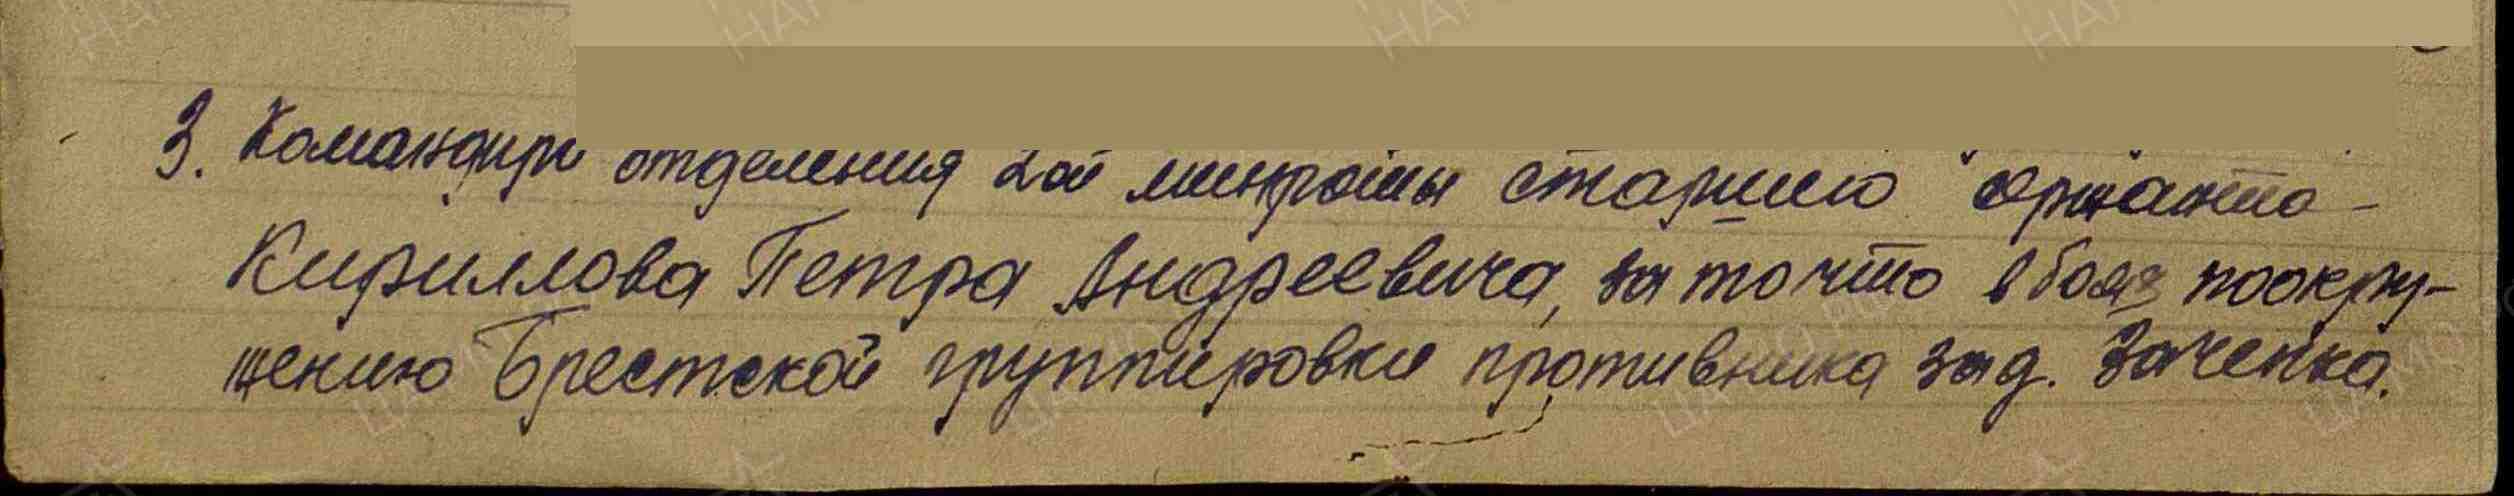 3. Командира отделения 2ой минроты старшего сержанта
Кириллова Петра Андреевича, за то что в боях по окру-
жению Брестской группировки противника за д. Заченка.